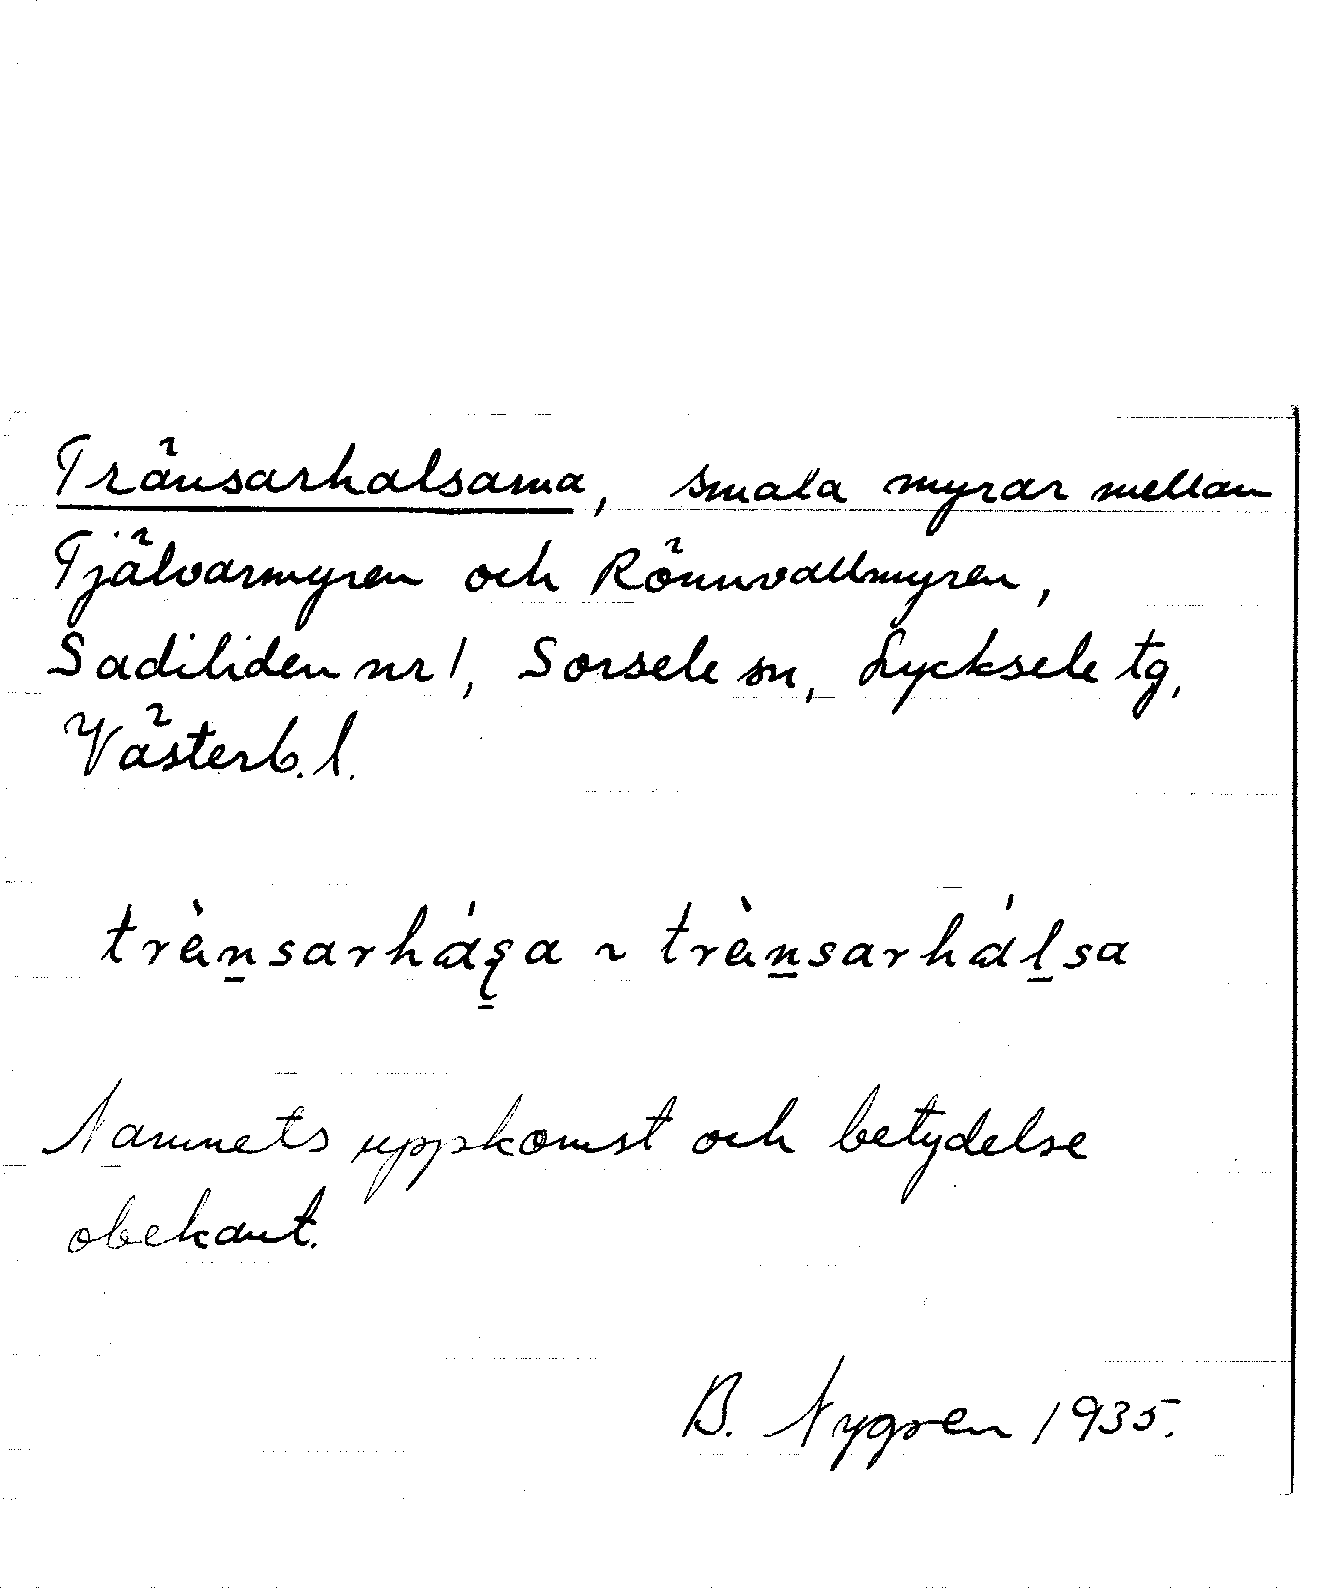 Tränsarhalsarna, smala myrar mellan
Tjälvarmyren och Rönnvallmyren,
Sadiliden nr 1, Sorsele sn, Lycksele tg,
Västerb. l.
trèn̲sarhás̲a ~ trèn̲sarhál̲sa
Namnets uppkomst och betydelse
obekant.
B. Nygren 1935.